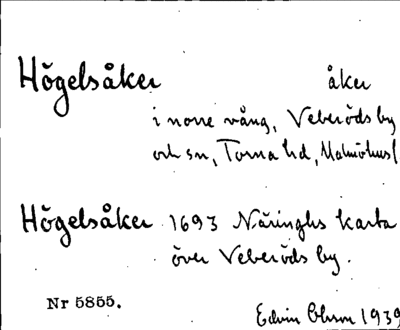 Högelsåker åker
i norre vång, Veberöds by
och sn, Torna hd, Malmöhus l
Högelsåker 1693 Näringhs karta
över Veberöds by.
Nr 5855.
Edvin Ohlson 1939